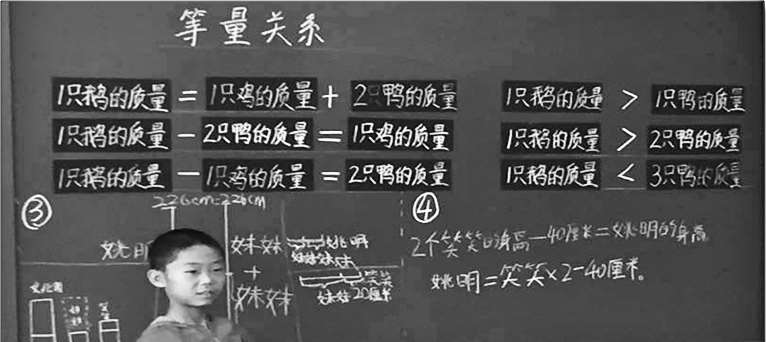 等量关系
1只鹅的质量 = 1只鸡的质量 + 2只鸭的质量
1只鹅的质量 > 1只鸭的质量
1只鹅的质量 - 2只鸭的质量 = 1只鸡的质量
1只鹅的质量 > 2只鸭的质量
1只鹅的质量 - 1只鸡的质量 = 2只鸭的质量
1只鹅的质量 < 3只鸭的质量
③
226cm=226cm
姚明
妹妹
+
妹妹
姚明
妹妹
笑笑
妹妹 20厘米
④
2个笑笑的身高-40厘米=姚明的身高
姚明=笑笑×2-40厘米。